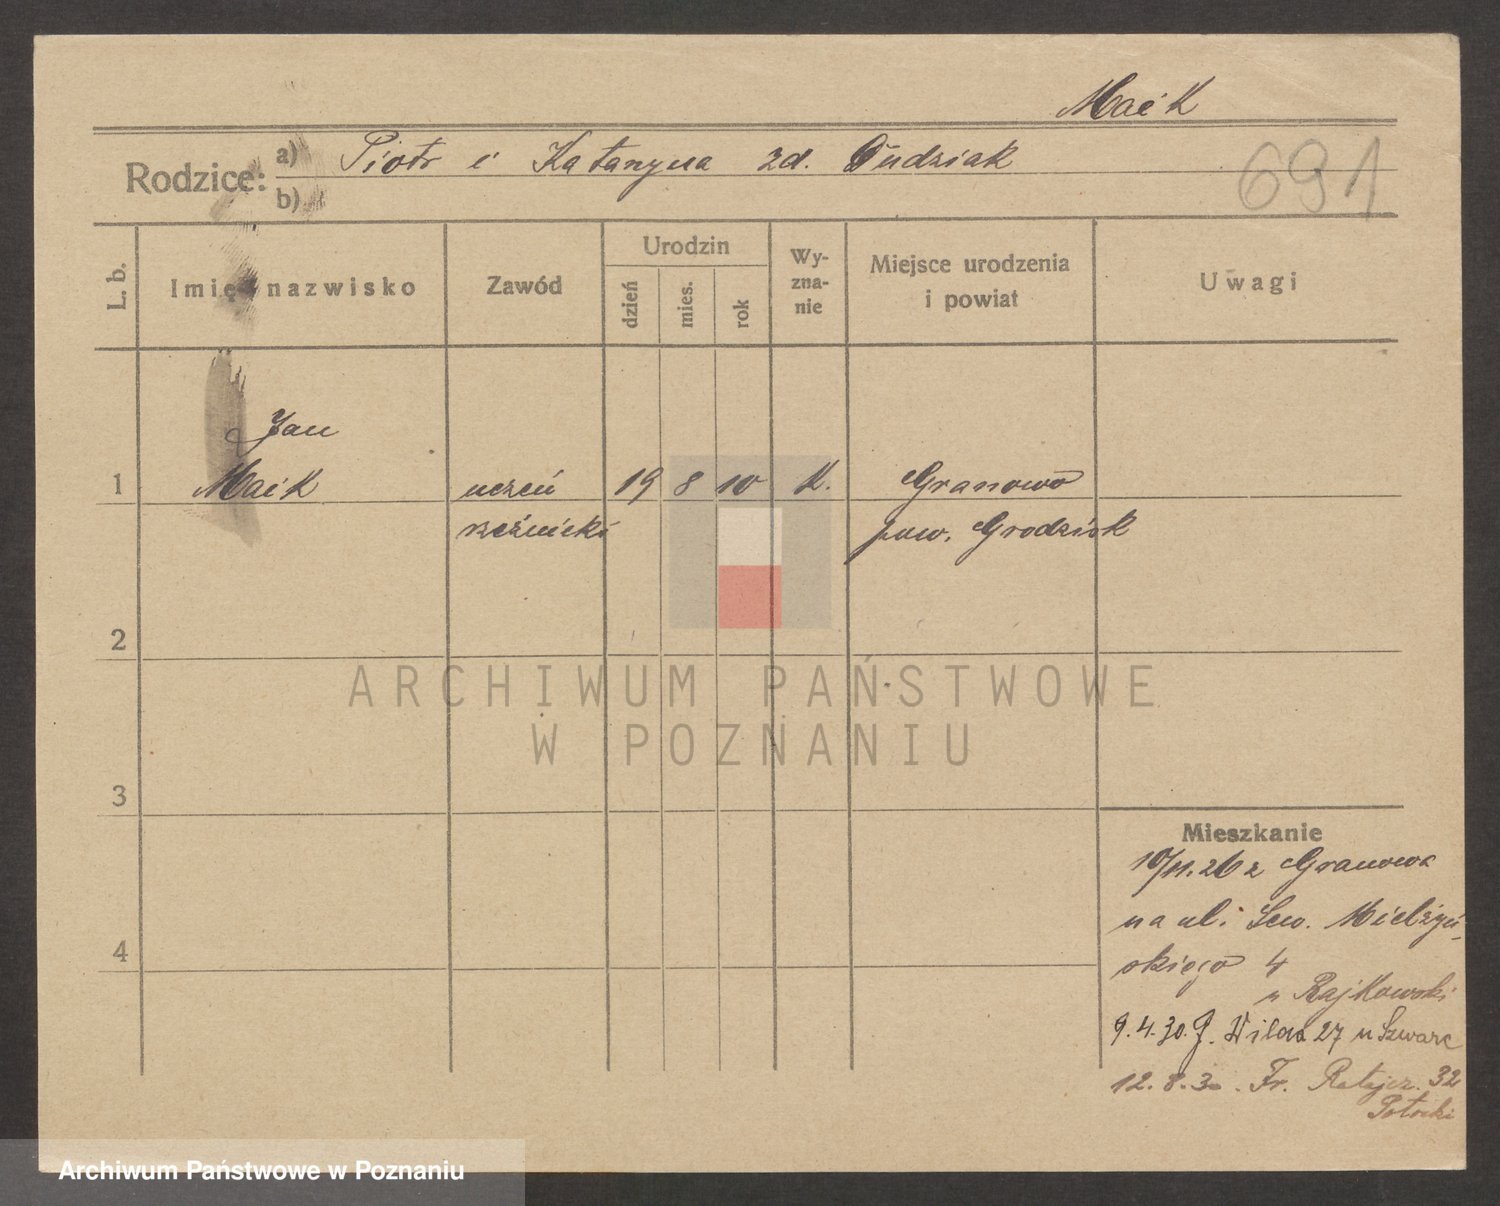 Maik
Rodzice: a) Piotr i Katarzyna zd. Dudziak
b)
691
L. b.
Imię i nazwisko
Zawód
Urodzin
dzień
mies.
rok
Wy-
zna-
nie
Miejsce urodzenia
i powiat
Uwagi
Jan
1 Maik uczeń 19 8 10 K. Granowo
rzeźnicki pow. Grodzisk
2
ARCHIWUM PAŃSTWOWE
W POZNANIU
3
Mieszkanie
10/11.26 z Granowa
na ul. Sew. Mielżyń-
4
skiego 4
u Rajkowski
9.4.30. G. Wilda 27 u Szwarc
12.8.30. Fr. Ratajcz. 32
Potocki
Archiwum Państwowe w Poznaniu